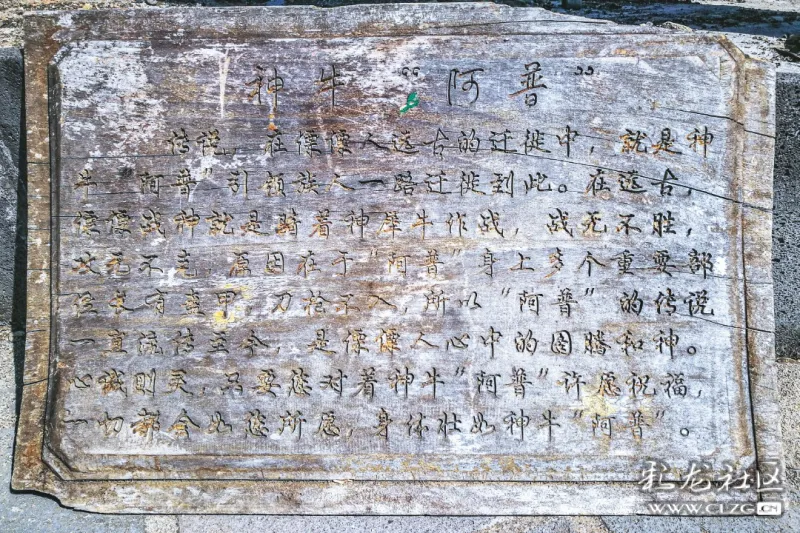 神牛“阿普”
传说，在傈僳人远古的迁徙中，就是神
牛“阿普”引领族人一路迁徙到此。在远古，
傈僳战神就是骑着神犀牛作战，战无不胜，
攻无不克，原因在于“阿普”身上多个重要部
位长有盔甲，刀枪不入，所以“阿普”的传说
一直流传至今，是傈僳人心中的图腾和神。
心诚则灵，只要您对着神牛“阿普”许愿祝福，
一切都会如您所愿，身体壮如神牛“阿普”。
彩龙社区
WWW.CLZG.CN